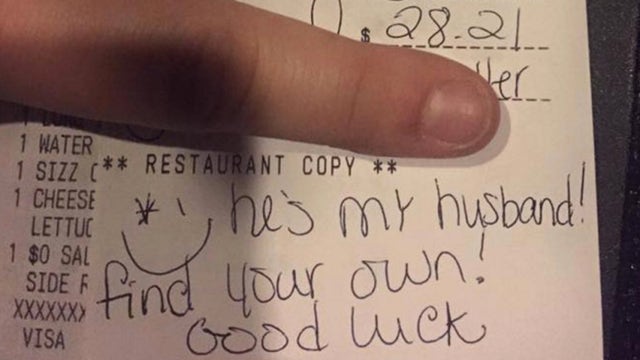 $ 28.21
1 WATER
1 SIZZ
** RESTAURANT COPY **
1 CHEESE
LETTUC
1 $0 SAL
SIDE
XXXXXXX
VISA
he's my husband!
find your own!
Good luck